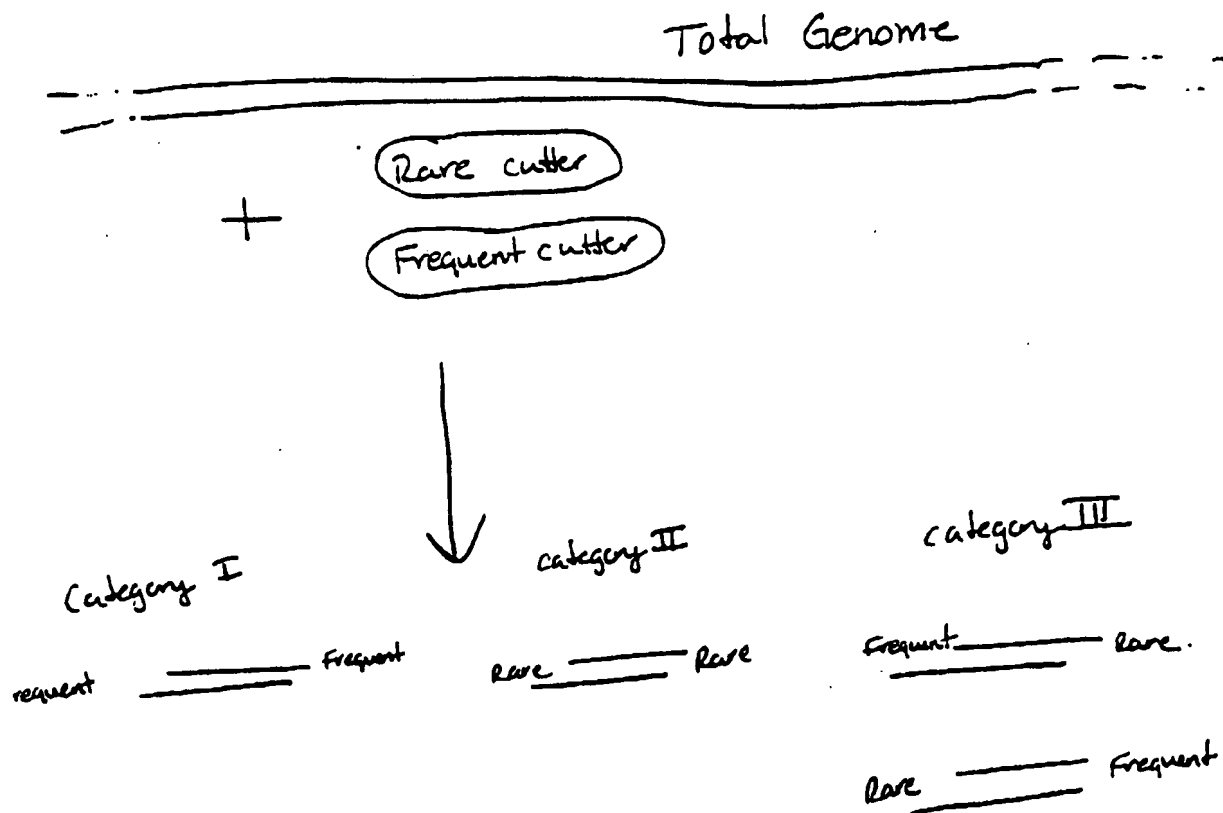 Total Genome
+
Rare cutter
Frequent cutter
Category I
category II
category III
requent Frequent
Rare Rare
Frequent Rare.
Rare Frequent